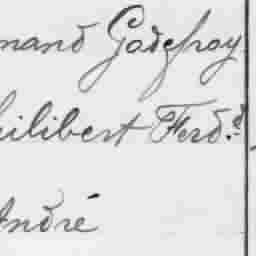 mand Godefroy
hilibert Ferd.d
André